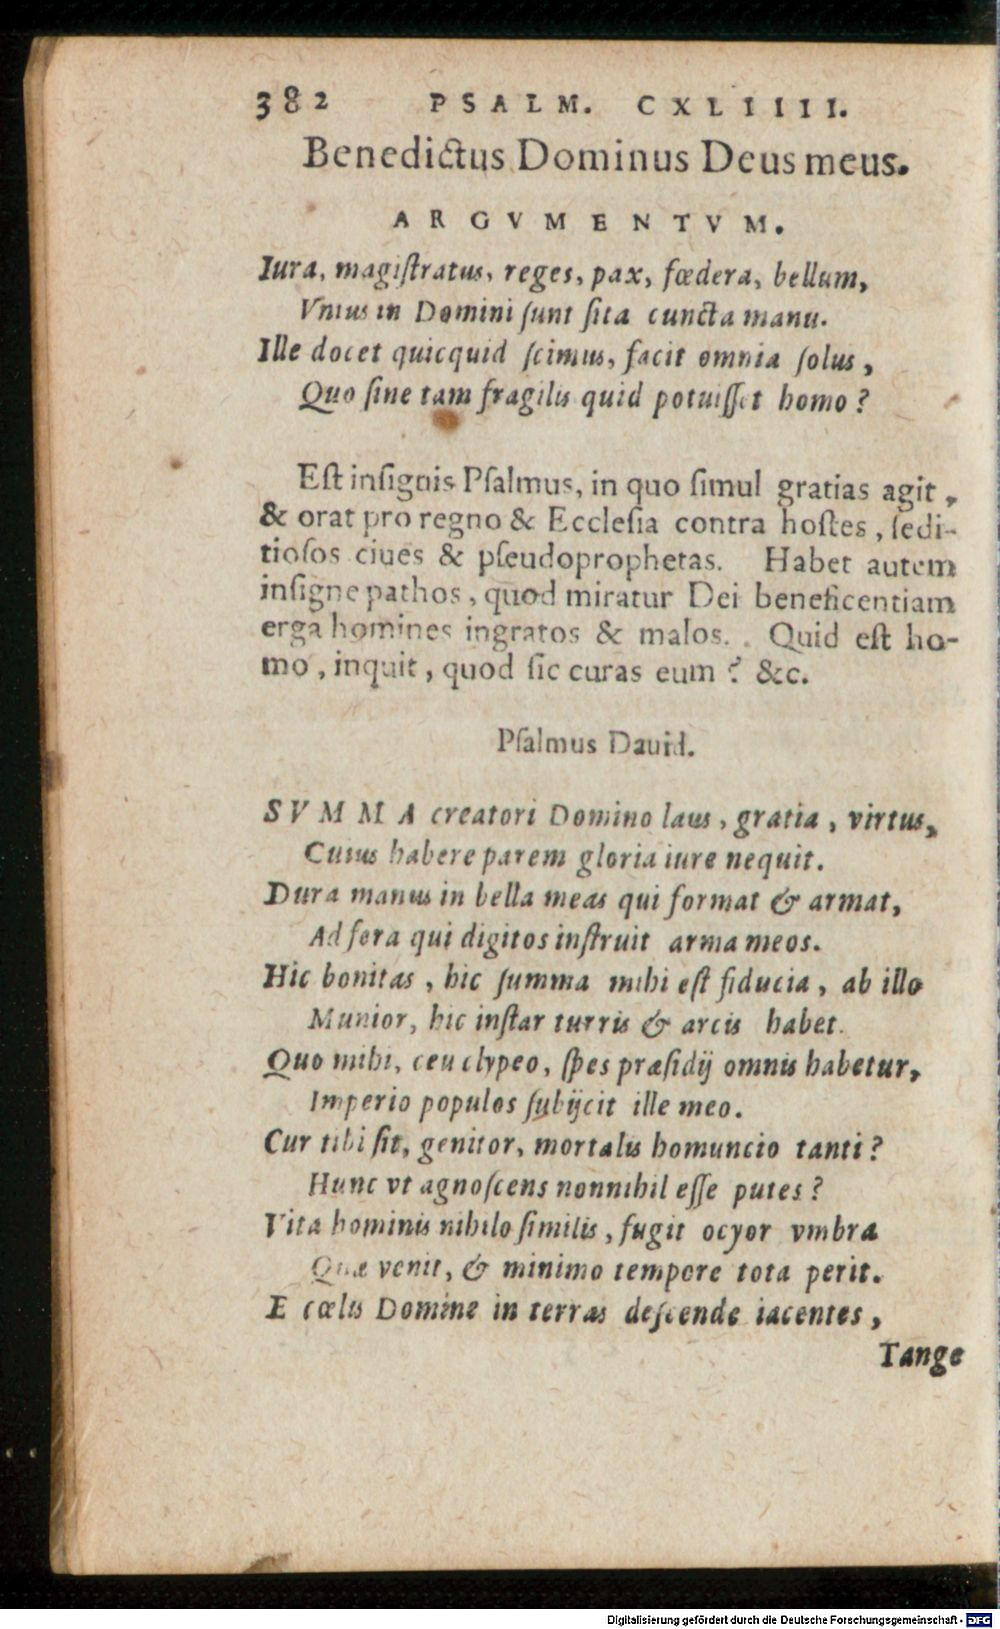 382 PSALM. CXLIIII.
Benedictus Dominus Deus meus.
ARGVMENTVM.
Iura, magiſtratus, reges, pax, fœdera, bellum,
Vnius in Domini ſunt ſita cuncta manu.
Ille docet quicquid ſcimus, facit omnia ſolus,
Quo ſine tam fragilis quid potuiſſet homo?
Eſt inſignis Pſalmus, in quo ſimul gratias agit,
& orat pro regno & Eccleſia contra hoſtes, ſedi-
tioſos ciues & pſeudoprophetas. Habet autem
inſigne pathos, quod miratur Dei beneficentiam
erga homines ingratos & malos. Quid eſt ho-
mo, inquit, quod ſic curas eum? &c.
Pſalmus Dauid.
SVMMA creatori Domino laus, gratia, virtus,
Cuius habere parem gloria iure nequit.
Dura manus in bella meas qui format & armat,
Ad fera qui digitos inſtruit arma meos.
Hic bonitas, hic ſumma mihi eſt fiducia, ab illo
Munior, hic inſtar turris & arcis habet.
Quo mihi, ceu clypeo, ſpes præſidij omnis habetur,
Imperio populos ſubijcit ille meo.
Cur tibi ſit, genitor, mortalis homuncio tanti?
Hunc vt agnoſcens nonnihil eſſe putes?
Vita hominis nihilo ſimilis, fugit ocyor vmbra
Quæ venit, & minimo tempore tota perit.
E cœlis Domine in terras deſcende iacentes,
Tange
Digitalisierung gefördert durch die Deutsche Forschungsgemeinschaft - DFG